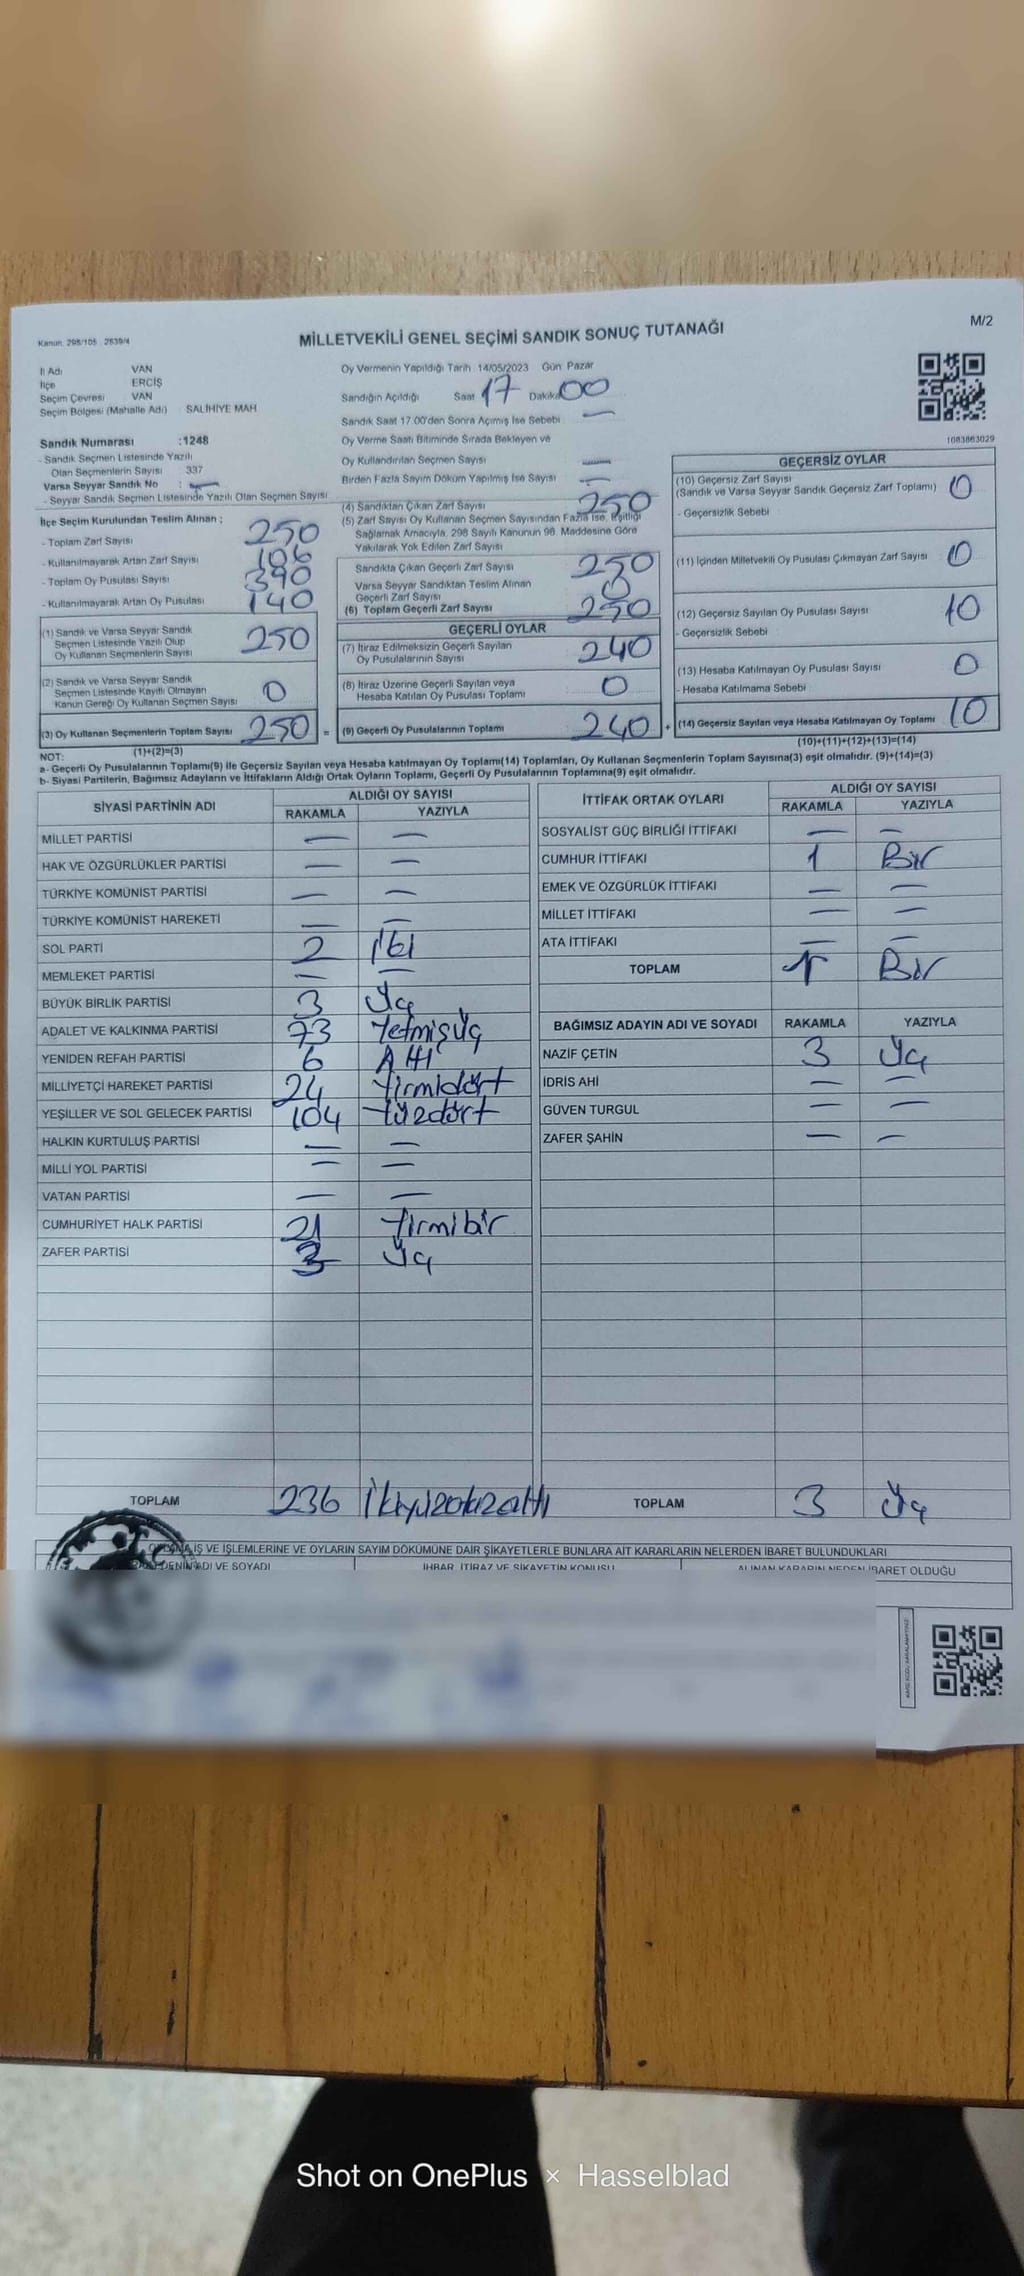 Kanun: 298/105 , 2839/4
MİLLETVEKİLİ GENEL SEÇİMİ SANDIK SONUÇ TUTANAĞI
M/2
İl Adı VAN
İlçe ERCİŞ
Seçim Çevresi VAN
Seçim Bölgesi (Mahalle Adı) SALİHİYE MAH
Sandık Numarası :1248
- Sandık Seçmen Listesinde Yazılı
Olan Seçmenlerin Sayısı 337
Varsa Seyyar Sandık No : —
- Seyyar Sandık Seçmen Listesinde Yazılı Olan Seçmen Sayısı
Oy Vermenin Yapıldığı Tarih 14/05/2023 Gün Pazar
Sandığın Açıldığı Saat 17 Dakika 00
Sandık Saat 17.00'den Sonra Açmış İse Sebebi —
Oy Verme Saati Bitiminde Sırada Bekleyen ve
Oy Kullandırılan Seçmen Sayısı —
Birden Fazla Sayım Döküm Yapılmış İse Sayısı —
1083863029
İlçe Seçim Kurulundan Teslim Alınan ;
- Toplam Zarf Sayısı 250
- Kullanılmayarak Artan Zarf Sayısı 106
- Toplam Oy Pusulası Sayısı 390
- Kullanılmayarak Artan Oy Pusulası 140
(1) Sandık ve Varsa Seyyar Sandık
Seçmen Listesinde Yazılı Olup
Oy Kullanan Seçmenlerin Sayısı 250
(2) Sandık ve Varsa Seyyar Sandık
Seçmen Listesinde Kayıtlı Olmayan
Kanun Gereği Oy Kullanan Seçmen Sayısı 0
(3) Oy Kullanan Seçmenlerin Toplam Sayısı 250 =
(1)+(2)=(3)
(4) Sandıktan Çıkan Zarf Sayısı 250
(5) Zarf Sayısı Oy Kullanan Seçmen Sayısından Fazla İse, Eşitliği
Sağlamak Amacıyla, 298 Sayılı Kanunun 98. Maddesine Göre
Yakılarak Yok Edilen Zarf Sayısı
Sandıkta Çıkan Geçerli Zarf Sayısı 250
Varsa Seyyar Sandıktan Teslim Alınan
Geçerli Zarf Sayısı 0
(6) Toplam Geçerli Zarf Sayısı 250
GEÇERLİ OYLAR
(7) İtiraz Edilmeksizin Geçerli Sayılan
Oy Pusulalarının Sayısı 240
(8) İtiraz Üzerine Geçerli Sayılan veya
Hesaba Katılan Oy Pusulası Toplamı 0
(9) Geçerli Oy Pusulalarının Toplamı 240 +
GEÇERSİZ OYLAR
(10) Geçersiz Zarf Sayısı
(Sandık ve Varsa Seyyar Sandık Geçersiz Zarf Toplamı) 0
- Geçersizlik Sebebi
(11) İçinden Milletvekili Oy Pusulası Çıkmayan Zarf Sayısı 0
(12) Geçersiz Sayılan Oy Pusulası Sayısı 10
- Geçersizlik Sebebi
(13) Hesaba Katılmayan Oy Pusulası Sayısı 0
- Hesaba Katılmama Sebebi
(14) Geçersiz Sayılan veya Hesaba Katılmayan Oy Toplamı 10
(10)+(11)+(12)+(13)=(14)
NOT:
a- Geçerli Oy Pusulalarının Toplamı(9) ile Geçersiz Sayılan veya Hesaba katılmayan Oy Toplamı(14) Toplamları, Oy Kullanan Seçmenlerin Toplam Sayısına(3) eşit olmalıdır. (9)+(14)=(3)
b- Siyasi Partilerin, Bağımsız Adayların ve İttifakların Aldığı Ortak Oyların Toplamı, Geçerli Oy Pusulalarının Toplamına(9) eşit olmalıdır.
SİYASİ PARTİNİN ADI ALDIĞI OY SAYISI
RAKAMLA YAZIYLA
MİLLET PARTİSİ — —
HAK VE ÖZGÜRLÜKLER PARTİSİ — —
TÜRKİYE KOMÜNİST PARTİSİ — —
TÜRKİYE KOMÜNİST HAREKETİ — —
SOL PARTİ 2 iki
MEMLEKET PARTİSİ — —
BÜYÜK BİRLİK PARTİSİ 3 Üç
ADALET VE KALKINMA PARTİSİ 73 Yetmişüç
YENİDEN REFAH PARTİSİ 6 Altı
MİLLİYETÇİ HAREKET PARTİSİ 24 Yirmidört
YEŞİLLER VE SOL GELECEK PARTİSİ 104 Yüzdört
HALKIN KURTULUŞ PARTİSİ — —
MİLLİ YOL PARTİSİ — —
VATAN PARTİSİ — —
CUMHURİYET HALK PARTİSİ 21 Yirmibir
ZAFER PARTİSİ 3 Üç
TOPLAM 236 İkiyüzotuzaltı
İTTİFAK ORTAK OYLARI ALDIĞI OY SAYISI
RAKAMLA YAZIYLA
SOSYALİST GÜÇ BİRLİĞİ İTTİFAKI — —
CUMHUR İTTİFAKI 1 Bir
EMEK VE ÖZGÜRLÜK İTTİFAKI — —
MİLLET İTTİFAKI — —
ATA İTTİFAKI — —
TOPLAM 1 Bir
BAĞIMSIZ ADAYIN ADI VE SOYADI RAKAMLA YAZIYLA
NAZİF ÇETİN 3 Üç
İDRİS AHİ — —
GÜVEN TURGUL — —
ZAFER ŞAHİN — —
TOPLAM 3 Üç
İŞ VE İŞLEMLERİNE VE OYLARIN SAYIM DÖKÜMÜNE DAİR ŞİKAYETLERLE BUNLARA AİT KARARLARIN NELERDEN İBARET BULUNDUKLARI
ADI VE SOYADI İHBAR, İTİRAZ VE ŞİKAYETİN KONUSU ALINAN KARARIN NEDEN İBARET OLDUĞU
Shot on OnePlus × Hasselblad